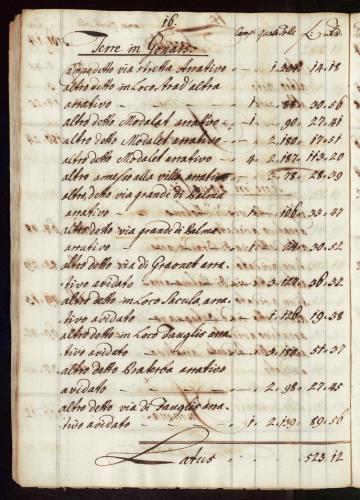 16.
Terre in Gonars. Campi Quarte Tole £ sd.
Campo detto via stretta Arrativo 1. 14.18
altro detto in Loco, trad'altra
arrativo 1. 88. 30.56
altro detto Modalet arrativo 1. 90. 27.41
altro detto Modalet arrativo 2. 180. 17.51
altro detto Modalet arrativo 4. 2. 187. 113.20
altro amesso alla villa arrativo 3. 78. 28.39
altro detto via grande di Palma
arrativo 1. 33.47
altro detto via grande di Palma
arrativo 30.52
altro detto via di Graonet arra
tivo avidato 3. 36.32
altro detto in Loco Sacula, arra
tivo avidato 1. 126. 19.38
altro detto in Loco Fauglis arra
tivo avidato 3. 180. 51.37
altro detto arrativo
avidato 2. 98. 27.45
altro detto via di Fauglis arra
tivo avidato 1. 2. 139. 89.56
Latus 523.12